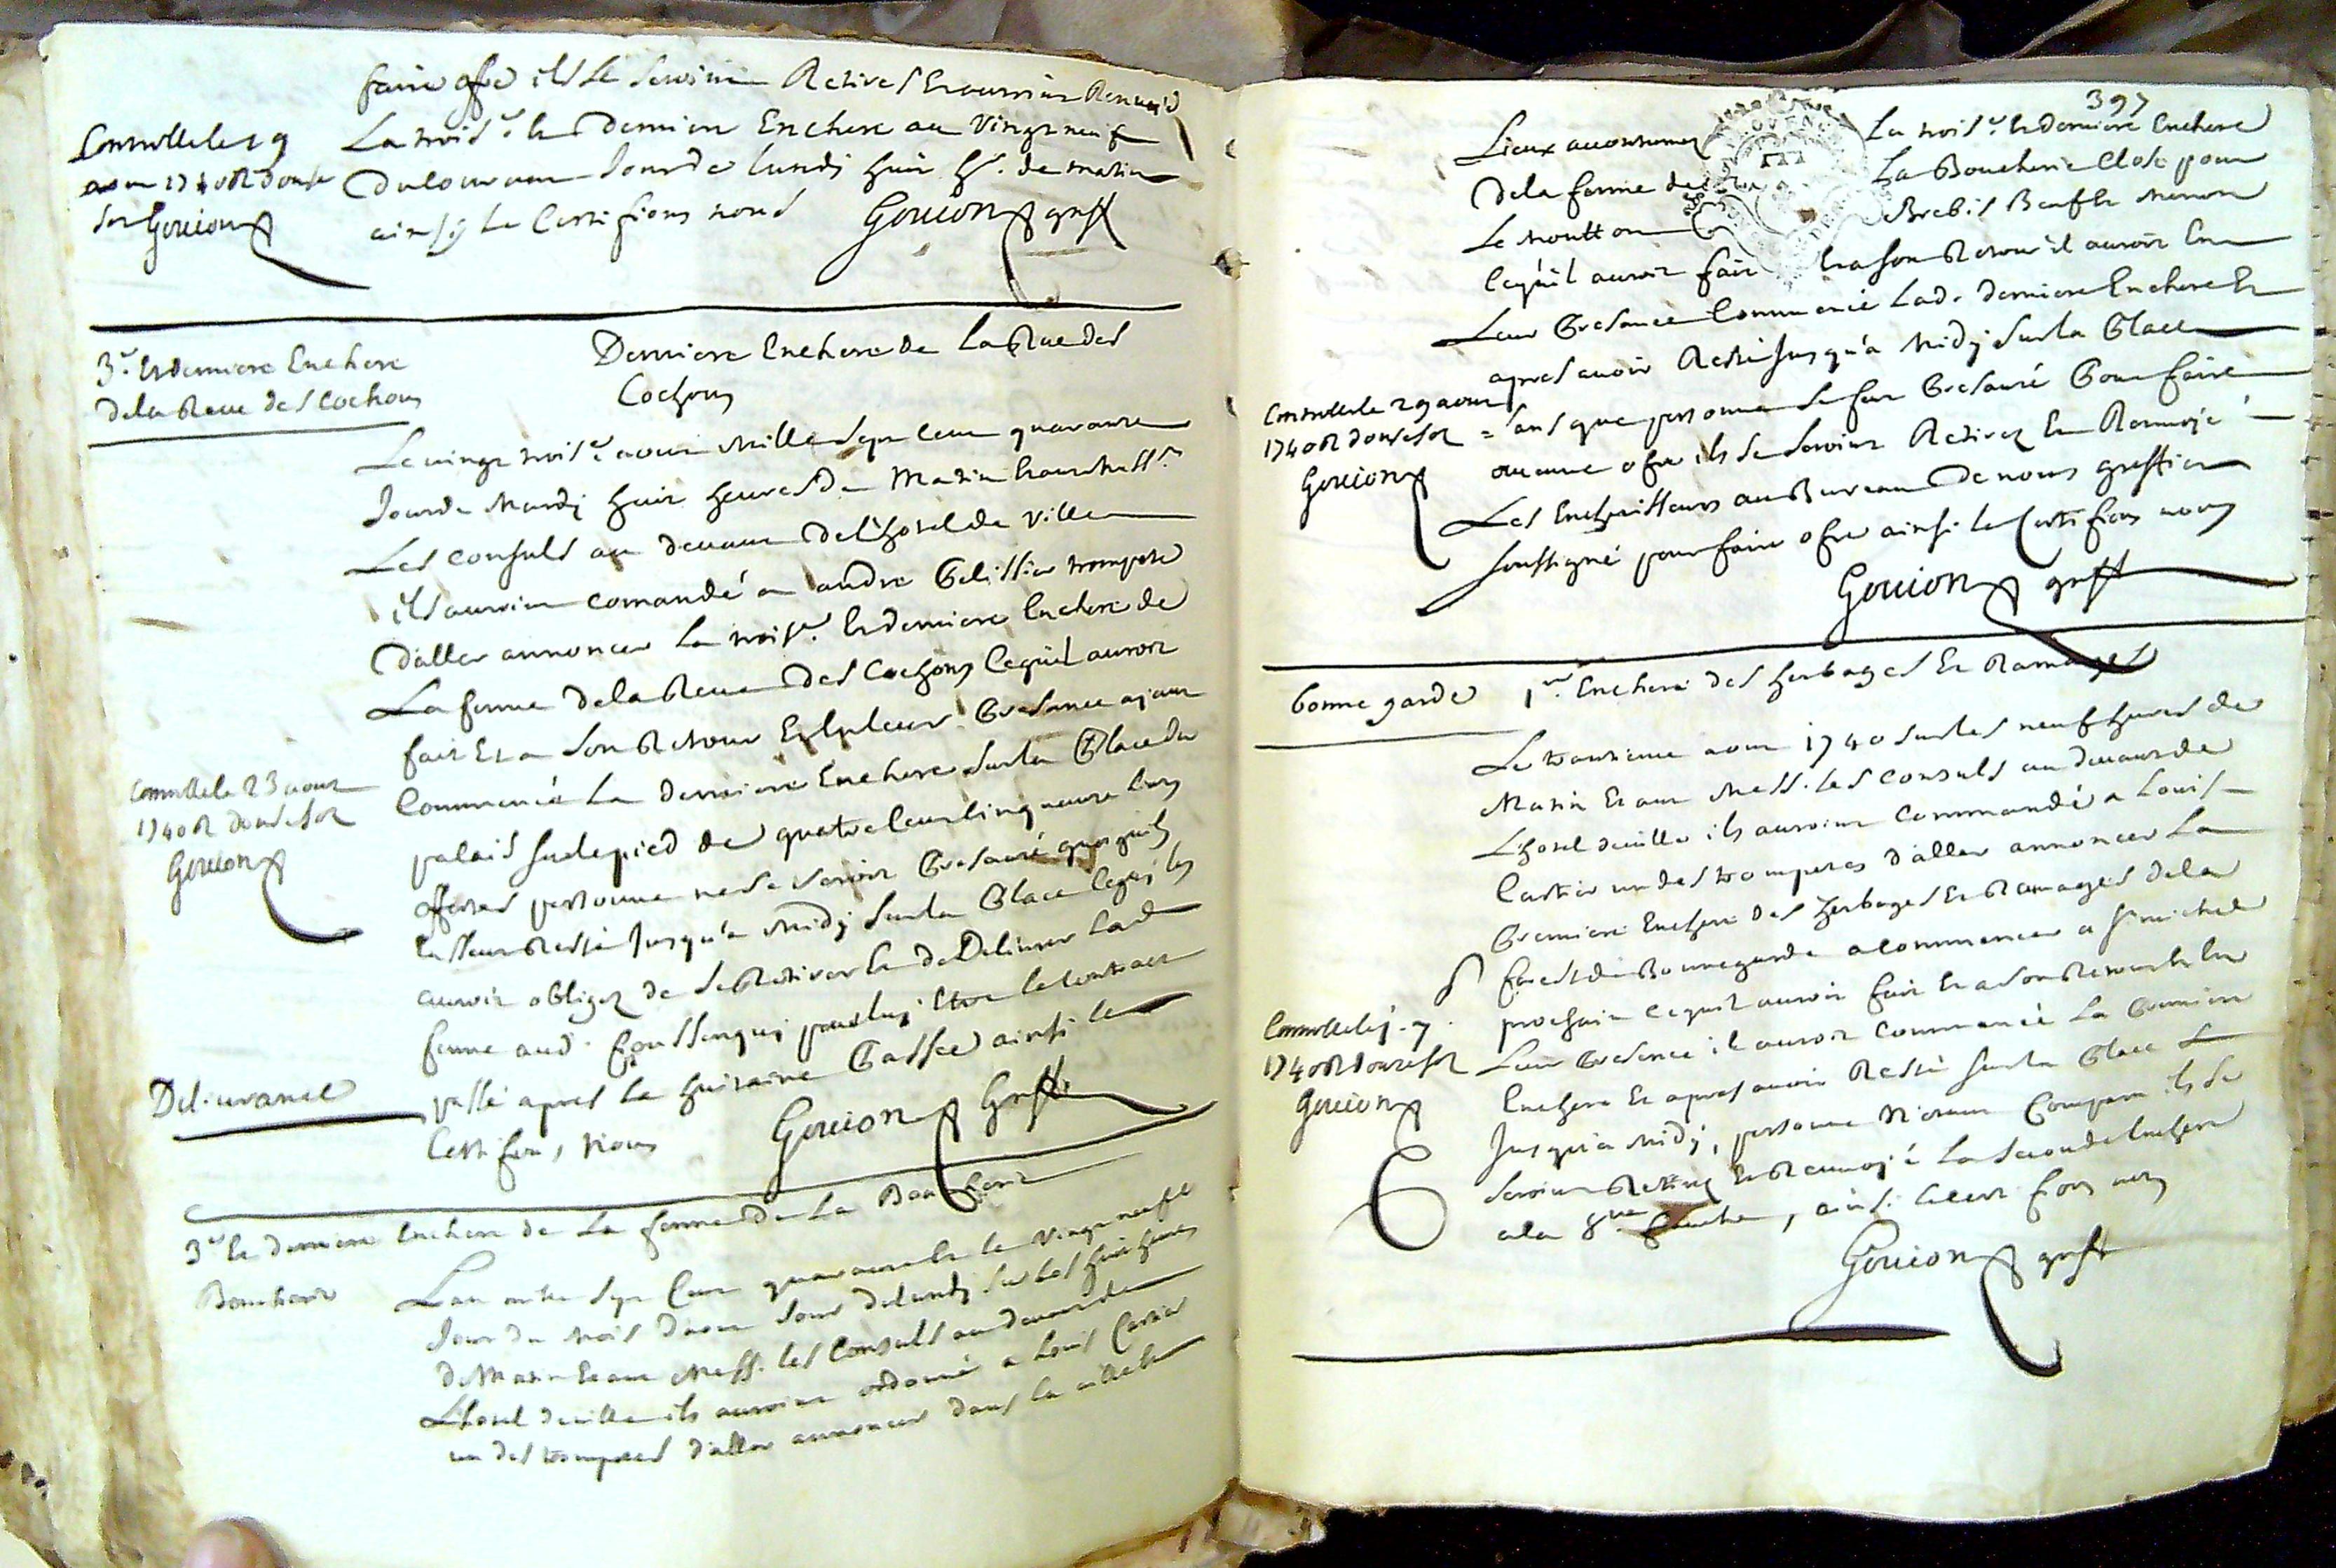 faire offre ils se seroint Retires Et auroint Renvoié
La trois.e Et Derniere Enchere au vingt neuf
Du courant Jour de lundi huit h.s de matin
ainsy Le Certifions nous Gouion greff
Controlle le 29
aout 1740 R douse
sos Gouion
3.e Et derniere Enchere
de la Reue des Cochons
Derniere Enchere de La Rue des
Cochons
Le vingt trois.e aout Mille Sept Cent quarante
Jour de Mardy huit heures De Matin Estant Mess.rs
Les Consuls au devant De L'hotel de Ville
ils auroint comandé a andre Pelissier trompete
D'aller annoncer La trois.e Et derniere Enchere de
La ferme de la Reue Des Cochons Ce qu'il auroit
fait Et a Son Retour En leur Presance
Commencé La Derniere Enchere Sur La Place du
palais sur le pied de quatre Cent Cinquante livres
offertes personne ne se seroit Presanté quoiqu'ils
Resté Jusqu'a Midy Sur la Place
auroit obligez de Se Retirer Et de Delivrer Lad.
ferme aud. pour luy Etre le Contract
passé apres La huitaine Passée ainsi le
Certifions Nous Gouion Greff
Controlle le 23 aout
1740 R douse sos
Gouion
Delivrance
3.e Et derniere Enchere de La ferme De La Boucherie
Boucherie
L'an mille Sept Cent quarante Et le Vingt neuf
Jour du Mois D'aout Jour de lundy Sur les huit heures
De Matin Estant Mess. les Consuls au devant de
L'hotel de ville ils auroint ordoné a Louis Castier
un des trompetes d'aller annoncer dans la ville Et
397
Lieux accoutumez La trois.e Et derniere Enchere
De la ferme de La Boucherie Close pour
Le moutton Brebis Beuf Et menon
Ce qu'il auroit fait Et a son Retour il auroit En
Leur Presance Commencé Lad. Derniere Enchere Et
apres avoir Resté Jusqu'a Midy Sur la Place
Sans que personne Se soit Presanté Pour faire
aucune ofre ils Se Seroint Retirez Et Renvoyé
Les Encherisseurs au Bureau De nous greffier
Soussigné pour faire ofre ainsi Le Certifions nous
Gouion greff
Controlle le 29 aout
1740 R douse sos
Gouion
bonne garde
1.re Enchere des herbages Et Ramages
Le trantieme aout 1740 sur les neuf heures de
Matin Etant Mess. les Consuls au devant de
L'hotel de ville ils auroint Commandé a Louis
Castier un des trompetes d'aller annoncer La
Premiere Enchere Des Herbages Et Ramages de la
forest de Bonnegarde a Commencer a St michel
prochain Ce qu'il auroit fait Et a son Retour Et En
Leur Presance il auroit Commencé La Premiere
Enchere Et apres avoir Resté Sur la Place
Jusqu'a Midy, personne N'etant Comparu ils Se
Seroint Retirez Et Renvoyé La Seconde Enchere
a la , ainsi le certifions nous
Gouion greff
Controlle le
1740 R douse sos
Gouion